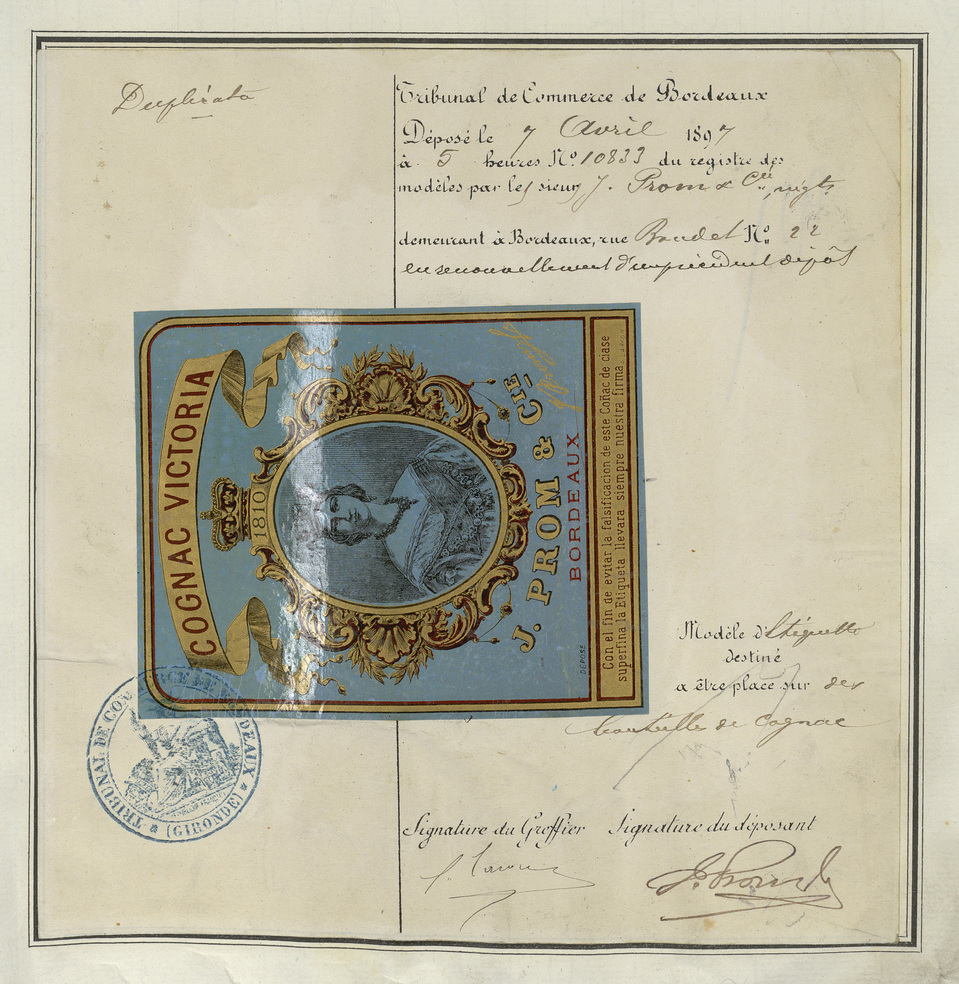 Duplicata
Tribunal de Commerce de Bordeaux
Déposé le 7 Avril 1897
à 5 heures Nº 10833 du registre des
modèles par les sieurs J. Prom & Cie, négts
demeurant à Bordeaux, rue Boudet Nº 22
en renouvellement d'un précédent dépôt
COGNAC VICTORIA
1810
J. PROM & CIE
BORDEAUX
DÉPOSÉ
Con el fin de evitar la falsificacion de este Coñac de clase
superfina la Etiqueta llevara siempre nuestra firma
Modèle d'étiquette
destiné
a être placé sur des
bouteille de Cognac
TRIBUNAL DE COMMERCE DE BORDEAUX
(GIRONDE)
Signature du Greffier Signature du déposant